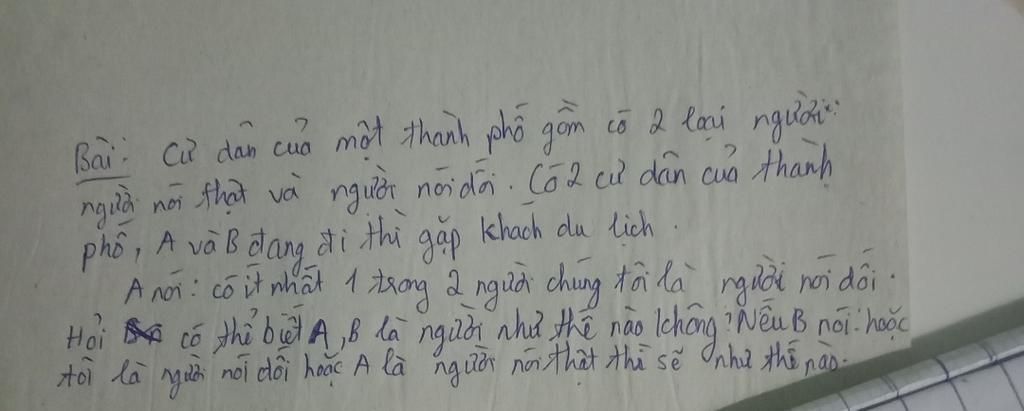 Bài: Cư dân của một thành phố gồm có 2 loại người:
người nói thật và người nói dối. Có 2 cư dân của thành
phố, A và B đang đi thì gặp khách du lịch.
A nói: có ít nhất 1 trong 2 người chúng tôi là người nói dối.
Hỏi có thể biết A, B là người như thế nào không? Nếu B nói: hoặc
tôi là người nói dối hoặc A là người nói thật thì sẽ như thế nào.